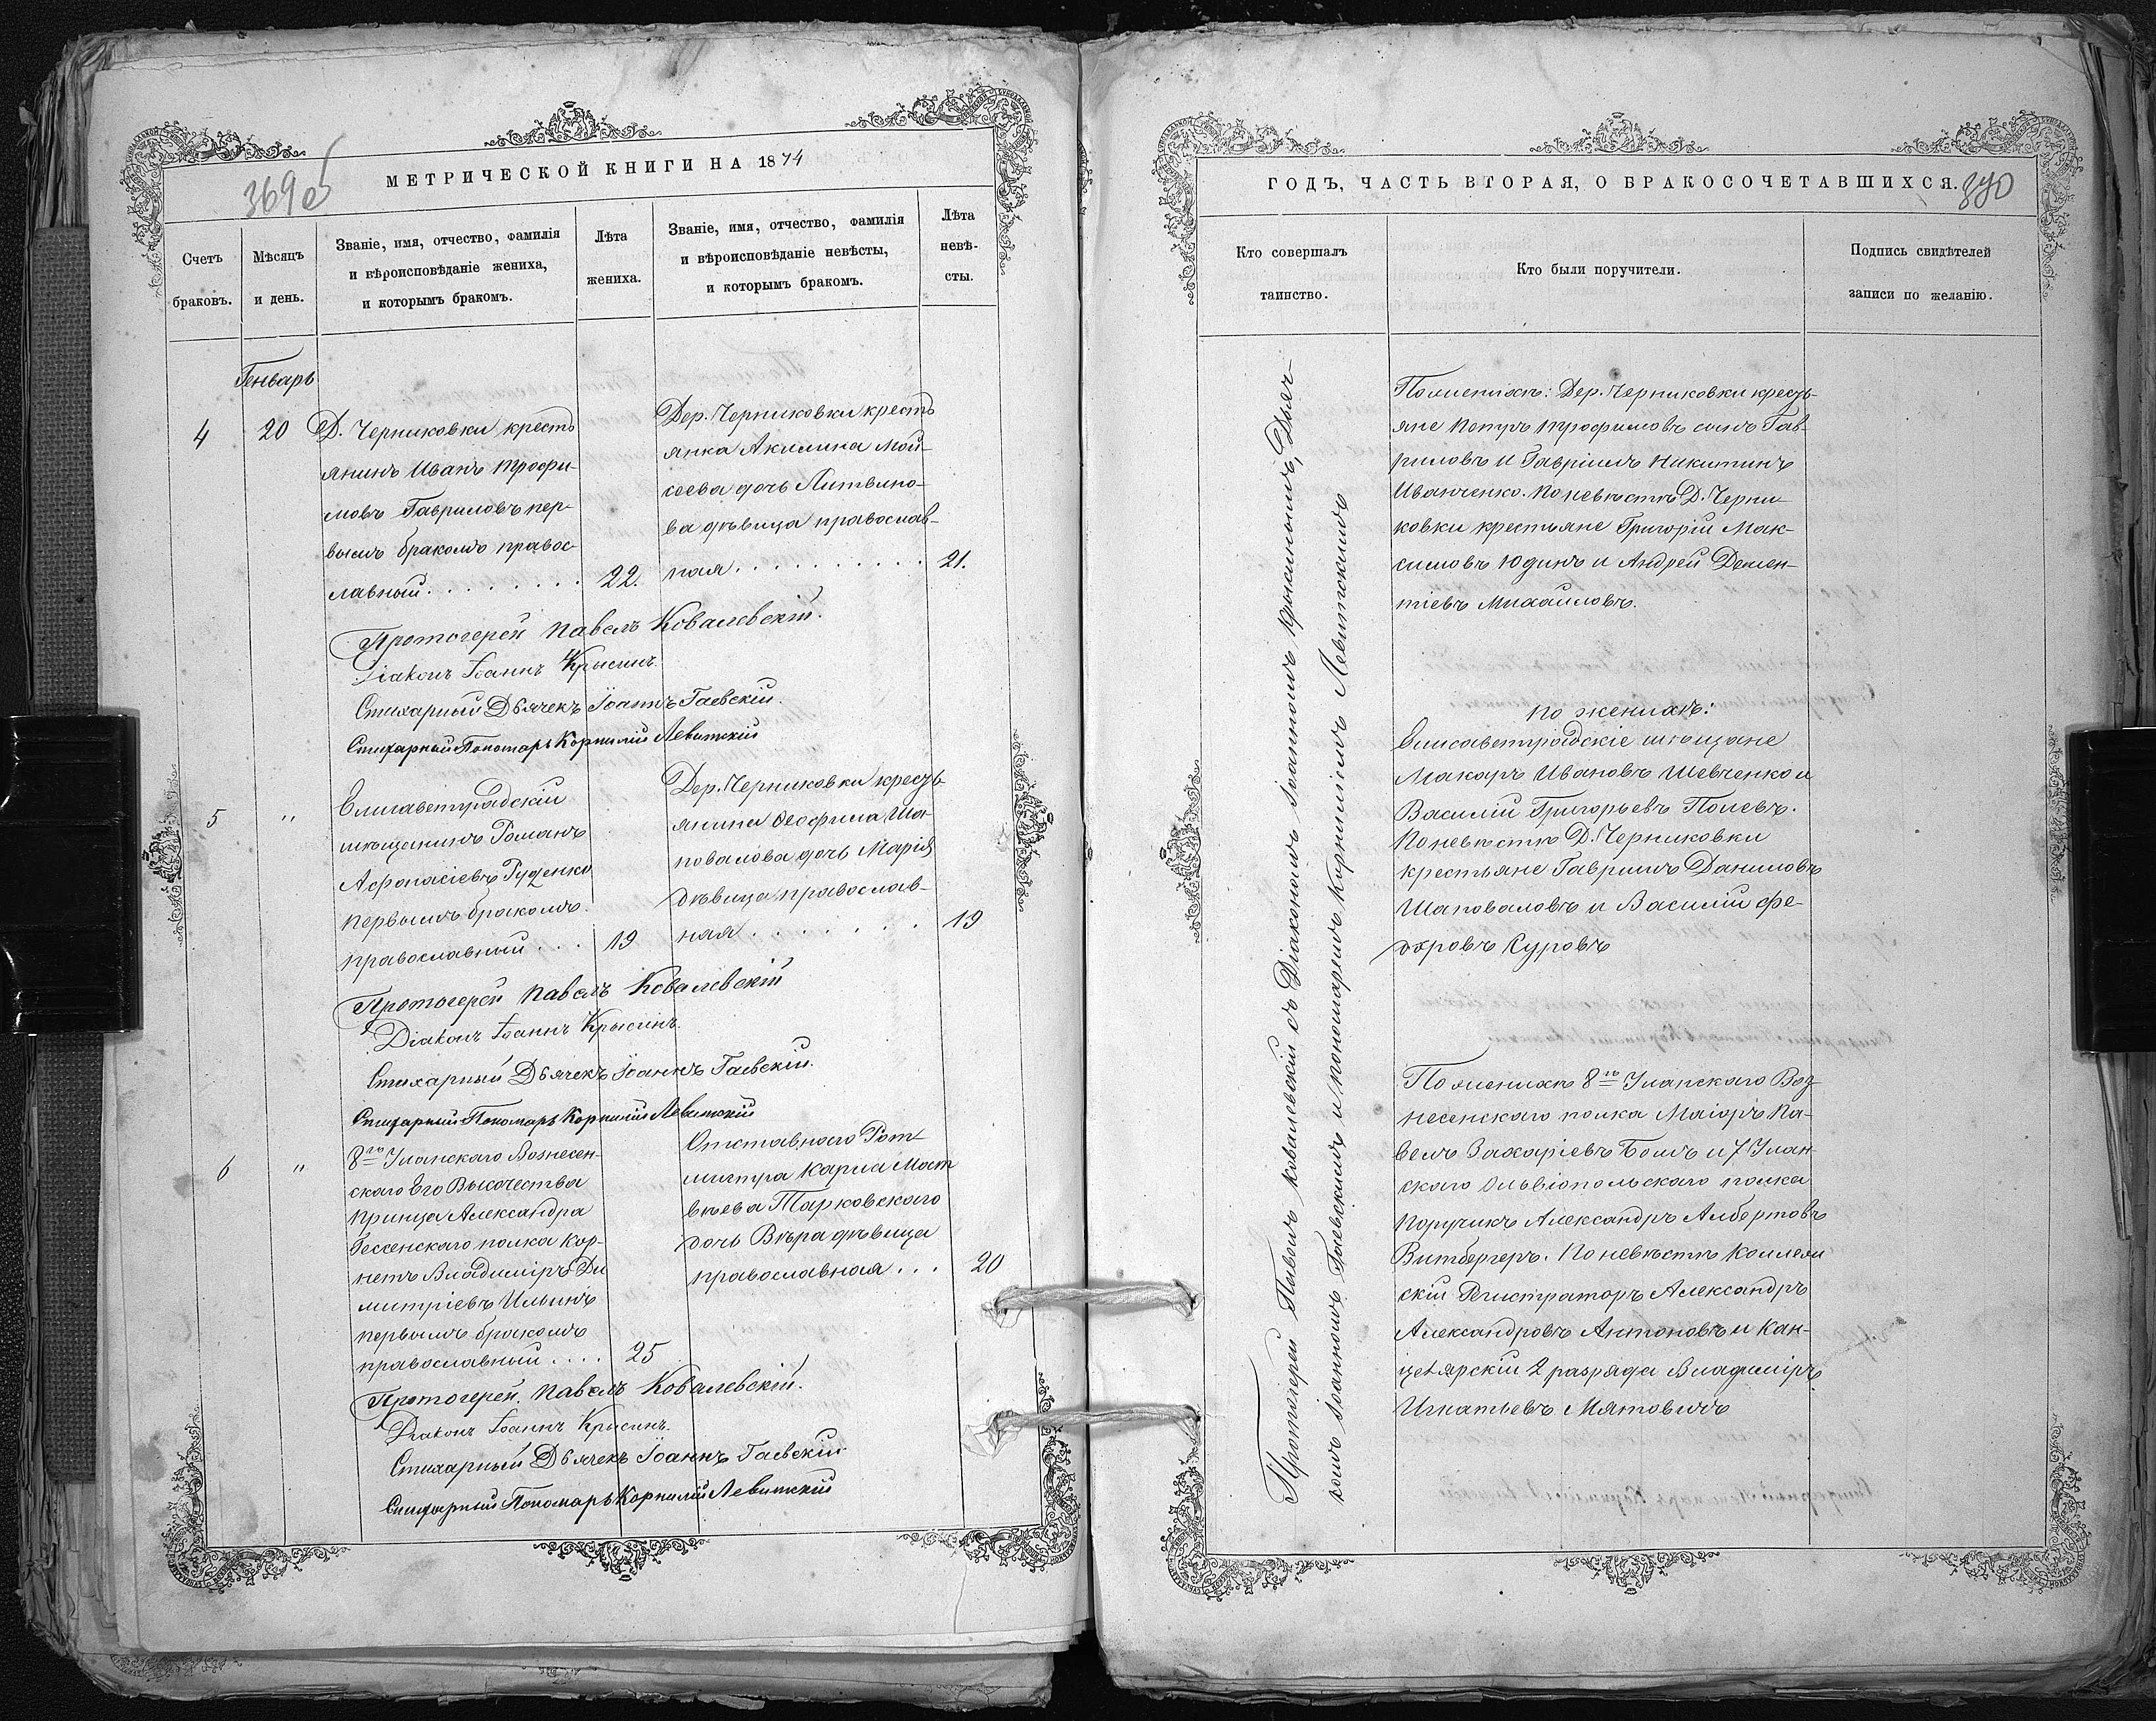 МЕТРИЧЕСКОЙ КНИГИ НА 1874
369 об
Счетъ
браковъ.
Мѣсяцъ
и день.
Званіе, имя, отчество, фамилія
и вѣроисповѣданіе жениха,
и которымъ бракомъ.
Лѣта
жениха.
Званіе, имя, отчество, фамилія
и вѣроисповѣданіе невѣсты,
и которымъ бракомъ.
Лѣта
невѣ-
сты.
Генварь
4
20
Д. Черниковки кресть
янинъ Иванъ Трофи-
мовъ Гавриловъ пер-
вымъ бракомъ правос-
лавный
22.
Дер. Черниковки кресть
янка Акилина Мой-
сеева дочь Литвино-
ва дѣвица православ-
ная
21.
Протоіерей Павелъ Ковалевскій.
Діаконъ Іоаннъ Крысинъ.
Стихарный Дьячекъ Іоаннъ Гаевскій.
Стихарный Пономарь Корнилій Левитскій
5
"
Елисаветградскій
мѣщанинъ Романъ
Афанасіевъ Руденко
первымъ бракомъ.
православный
19
Дер. Черниковки кресть-
янина Ѳеофила Ша-
повалова дочь Марія
дѣвица православ-
ная
19
Протоіерей Павелъ Ковалевскій
Діаконъ Іоаннъ Крысинъ.
Стихарный Дьячекъ Іоаннъ Гаевскій.
Стихарный Пономарь Корнилій Левитскій
6
"
8го Уланскаго Вознесен-
скаго Его Высочества
Принца Александра
Гессенскаго полка Кор-
нетъ Владиміръ Ди
митріевъ Ильинъ
первымъ бракомъ
православный
25
Отставнаго Рот
мистра Карпа Мат
вѣева Тарковскаго
дочь Вѣра дѣвица
православная
20
Протоіерей Павелъ Ковалевскій.
Діаконъ Іоаннъ Крысинъ.
Стихарный Дьячекъ Іоаннъ Гаевскій
Стихарный Пономарь Корнилій Левитскій
ГОДЪ, ЧАСТЬ ВТОРАЯ, О БРАКОСОЧЕТАВШИХСЯ.
370
Кто совершалъ
таинство.
Кто были поручители.
Подпись свидѣтелей
записи по желанію.
Протоіерей Павелъ Ковалевскій съ Діакономъ Іоанномъ Крысинымъ, Дьяч-
комъ Іоанномъ Гаевскимъ и пономаремъ Корниліемъ Левитскимъ
По женихѣ: Дер. Черниковки кресть-
яне Петръ Трофимовъ сынъ Гав-
риловъ и Гавріилъ Никитинъ
Иванченко. По невѣстѣ Д. Черни-
ковки крестьяне Григорій Мак-
симовъ Юдинъ и Андрей Демен-
тіевъ Михайловъ.
По женихѣ:
Елисаветградскіе мѣщане
Макаръ Ивановъ Шевченко и
Василій Григорьевъ Полевъ.
По невѣстѣ Д. Черниковки
крестьяне Гавріилъ Даниловъ
Шаповаловъ и Василій Фе-
доровъ Куровъ
По женихѣ 8го Уланскаго Воз-
несенскаго полка Маіоръ Па-
велъ Захаріевъ Бомъ и 7 Улан-
скаго Ольвіопольскаго полка
Поручикъ Александръ Албертовъ
Витбергеръ. По невѣстѣ Коллеж
скій Регистраторъ Александръ
Александровъ Антоновъ и Кан-
целярскій 2 разряда Владиміръ
Игнатьевъ